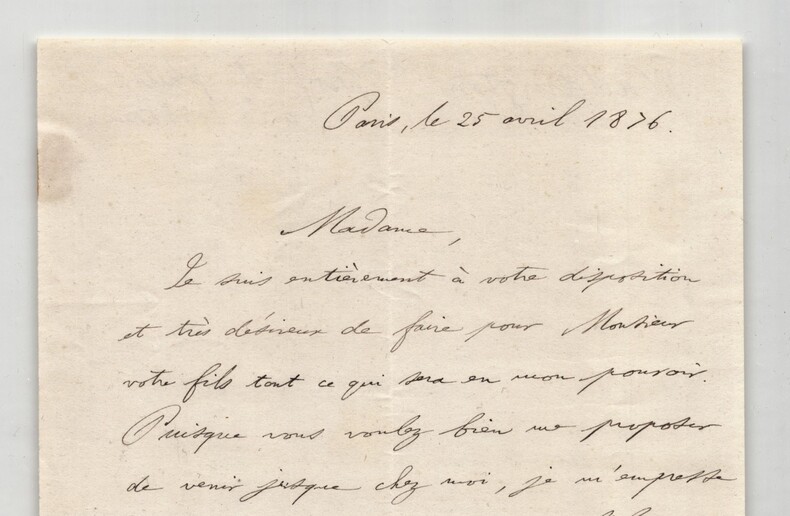 Paris, le 25 avril 1876.
Madame,
Je suis entièrement à votre disposition
et très désireux de faire pour Monsieur
votre fils tout ce qui sera en mon pouvoir.
Puisque vous voulez bien me proposer
de venir jusque chez moi, je m'empresse